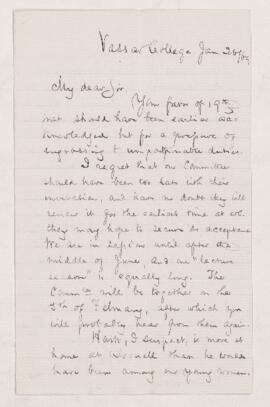 Vassar College Jan 26/69
My dear Sir
Your favor of 19th
inst should have been earlier ac-
knowledged but for a pressure of
engrossing & unpostponable duties.
I regret that our Committee
should have been too late with their
invitation, and have no doubt they will
renew it for the earliest time at wh.
they may hope to secure its acceptance.
We are in session until after the
middle of June, and our "lecture
season" is equally long. The
Committee will be together on the
5th of February, after which you
will probably hear from them again.
Hartt, I suspect, is more at
home at Cornell than he would
have been among our young women.